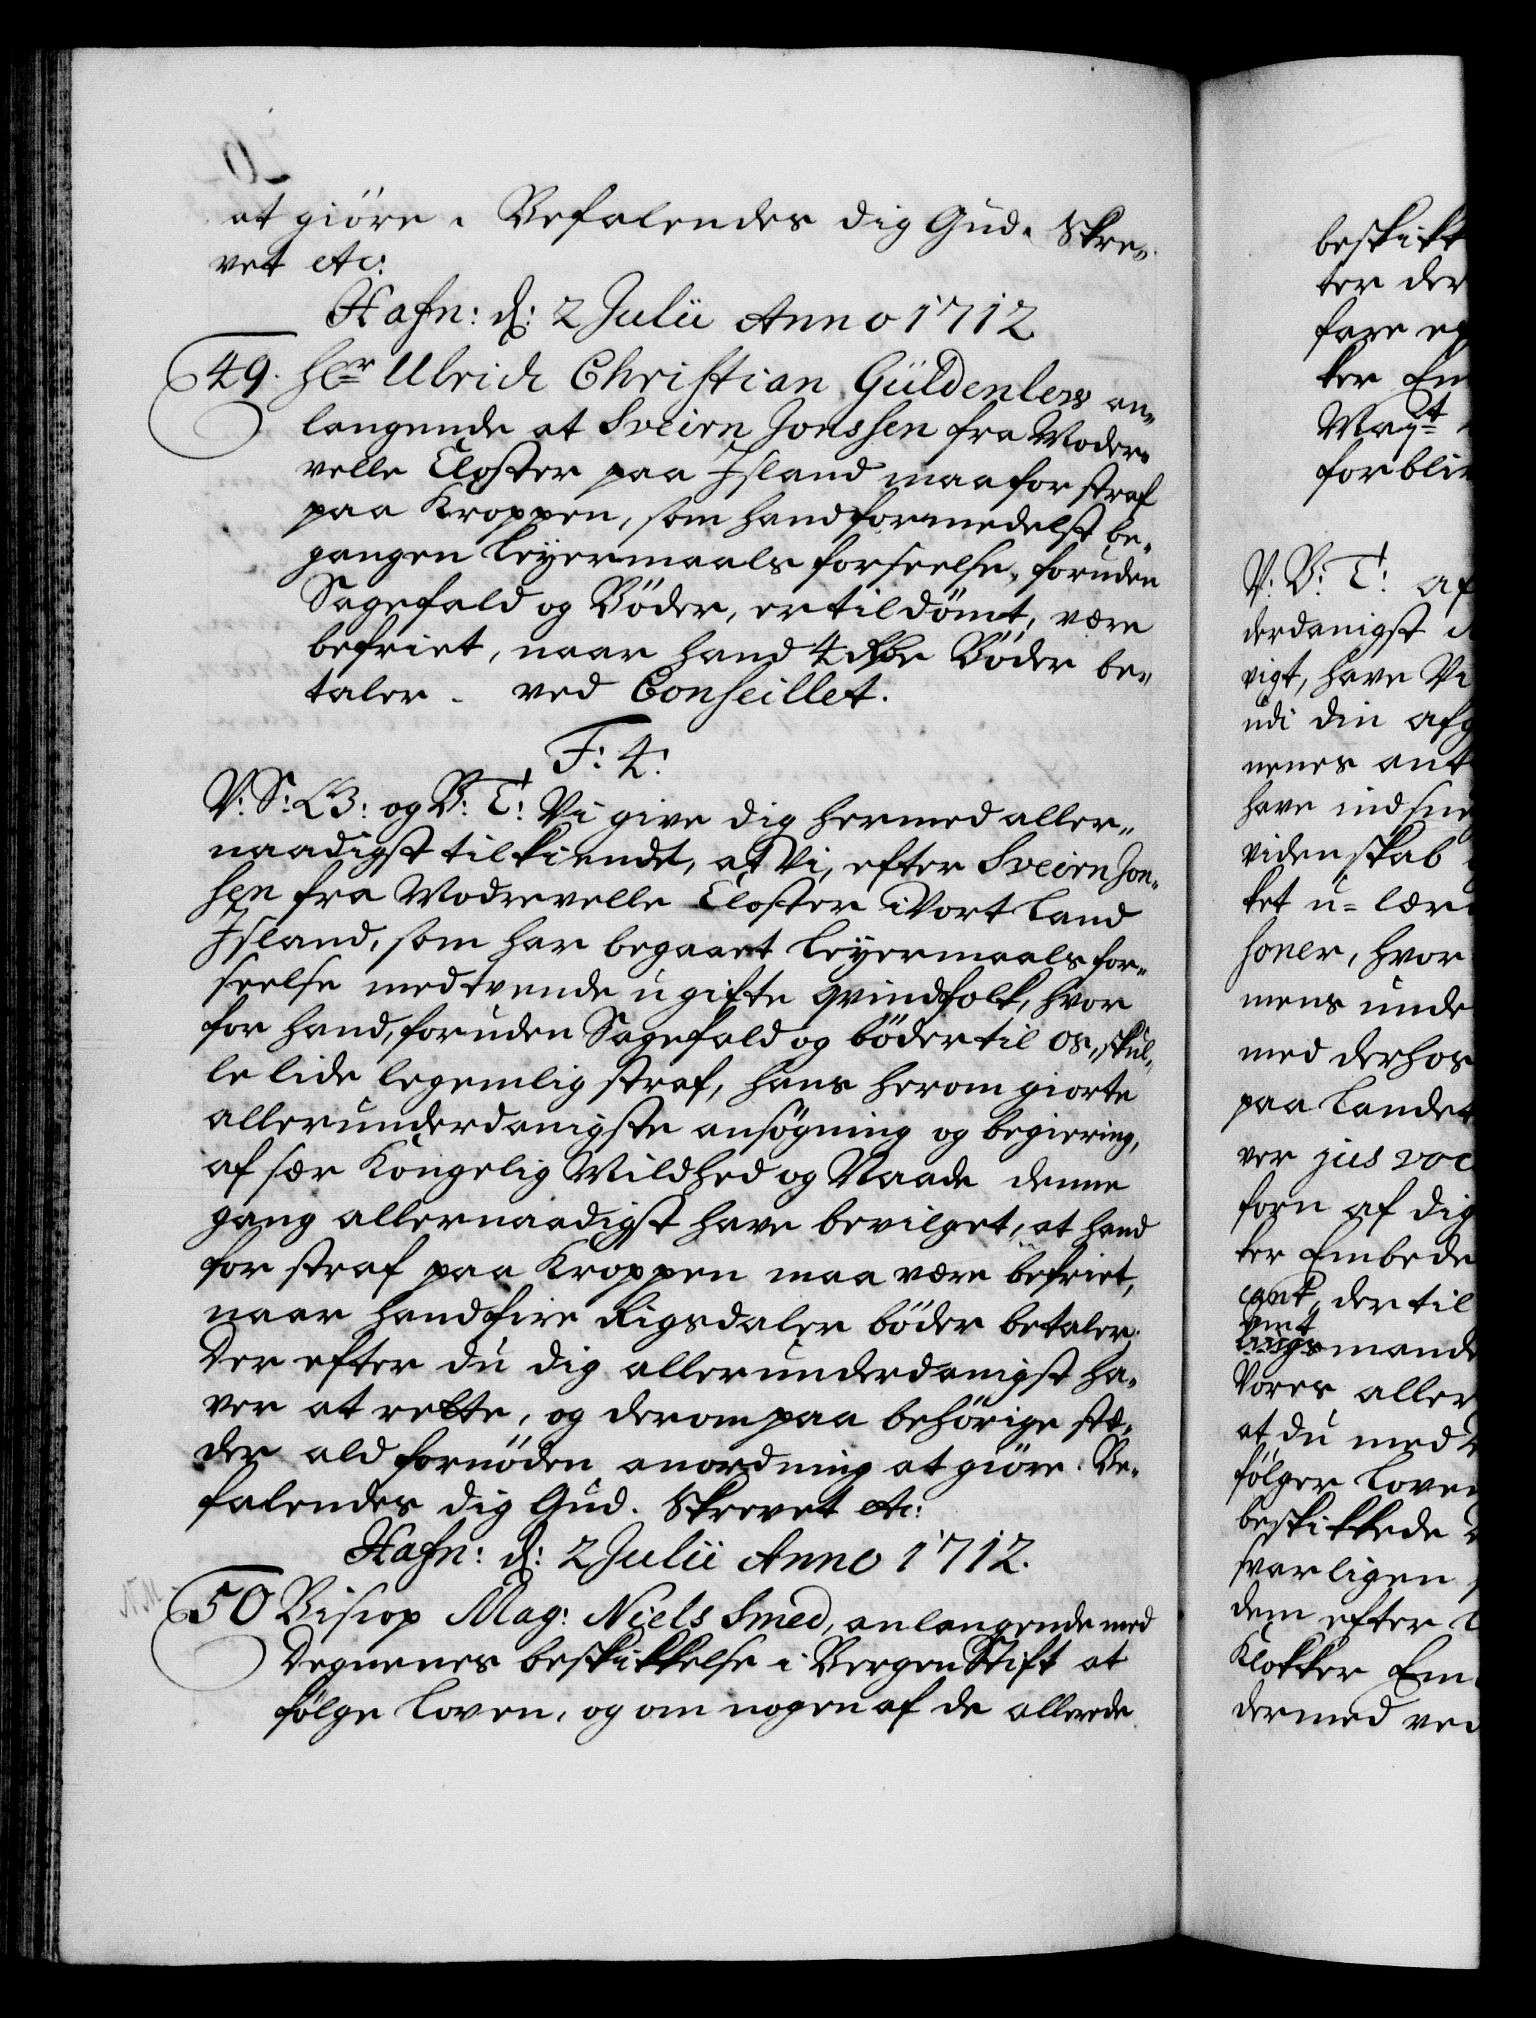 at giöre. Befalendes dig Gud. Skre-
vet etc:
Hafn: d: 2 Julii Anno 1712
49. Hr Ulrich Christian Güldenlew an-
langende at Sveirn Jonssen fra Moder-
velle Closter paa Jsland maa for straf
paa Kroppen, som hand formedelst be-
gangen Leyermaals forseelse, foruden
Sagefald og Böder, er tildömt, være
befriet, naar hand 4 Rdr Böder be-
taler. ved Conseillet.
F: 4:
V: S: G: og B: T: Vi give dig hermed aller-
naadigst tilkiende, at Vi, efter Sveirn Jon-
sen fra Modrevelle Closter i Vort Land
Jsland, som har begaaet Leyermaals for-
seelse med tvende ugifte qvindfolk, hvor
for hand, foruden Sagefald og böder til os, skul-
le lide legemlig straf, hans herom giorte
allerunderdanigste ansögning og begiering,
af sær Kongelig Mildhed og Naade denne
gang allernaadigst have bevilget, at hand
for straf paa Kroppen maa være befriet,
naar hand fire Rigsdaler böder betaler.
Der efter du dig allerunderdanigst ha-
ver at rette, og derom paa behörige stæ-
der ald fornöden anordning at giöre. Be-
falendes dig Gud. Skrevet etc:
Hafn: d: 2 Julii Anno 1712.
50 Bisiop Mag: Niels Smed, anlangende med
Degnenes beskikkelse i Bergen Stift at
fölge Loven, og om nogen af de allerede
beskikk
ter der
fare
ker Em
Mayt
forbliv
V: B: T: af
derdanigst
vigt, have Vi
udi din afg
nenes ant
have indsne
videnskab
ket u-lær
soner, hvor
mens unde
med derhos
paa Landet
ver jus voc
forn af dig
ker Embede
der til
mande
Vores aller
at du med
fölger Loven
beskikkede
svarligen
dem efter
Klokker Em
dermed ved